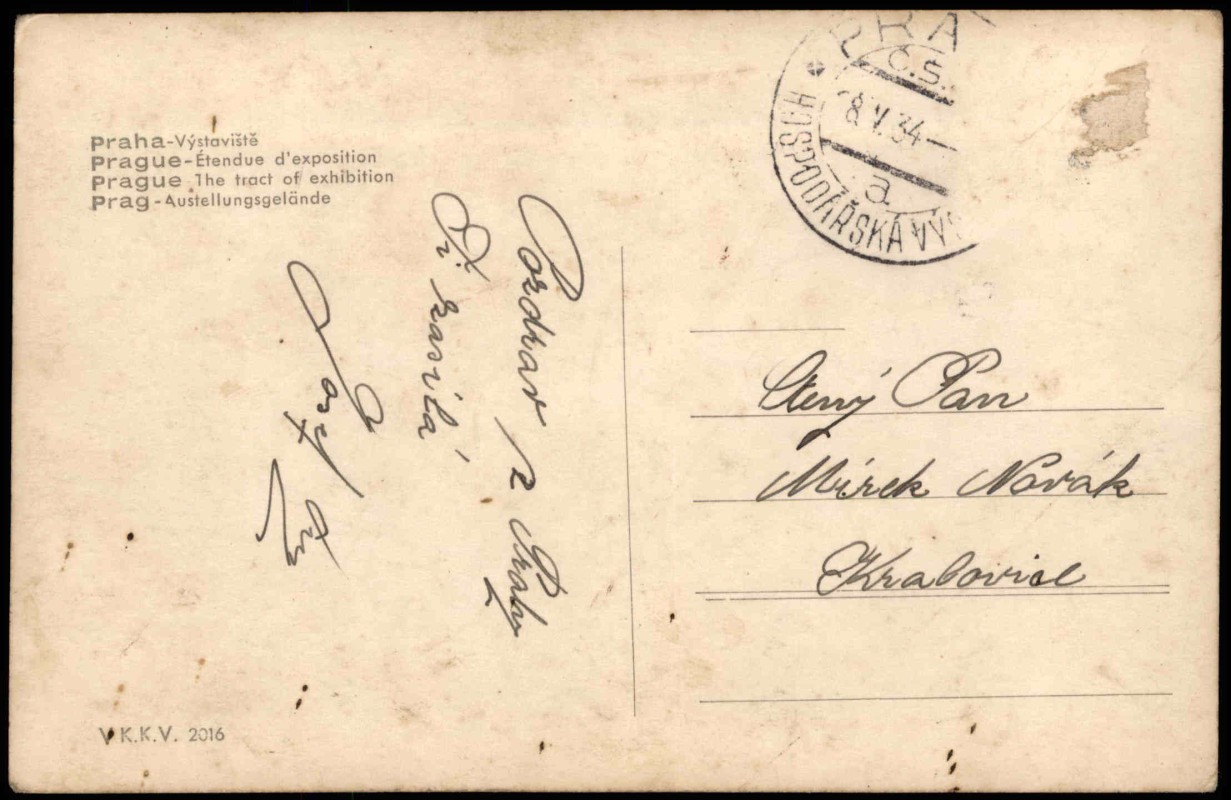 Praha-Výstaviště
Prague-Étendue d'exposition
Prague The tract of exhibition
Prag-Austellungsgelände
Pozdrav z Prahy
Ti zasílá
Josef
PRA
Č.S.
8.V.34-
a
HOSPODÁŘSKÁ VÝS
Ctený Pan
Mirek Novák
Kralovice
V.K.K.V. 2016